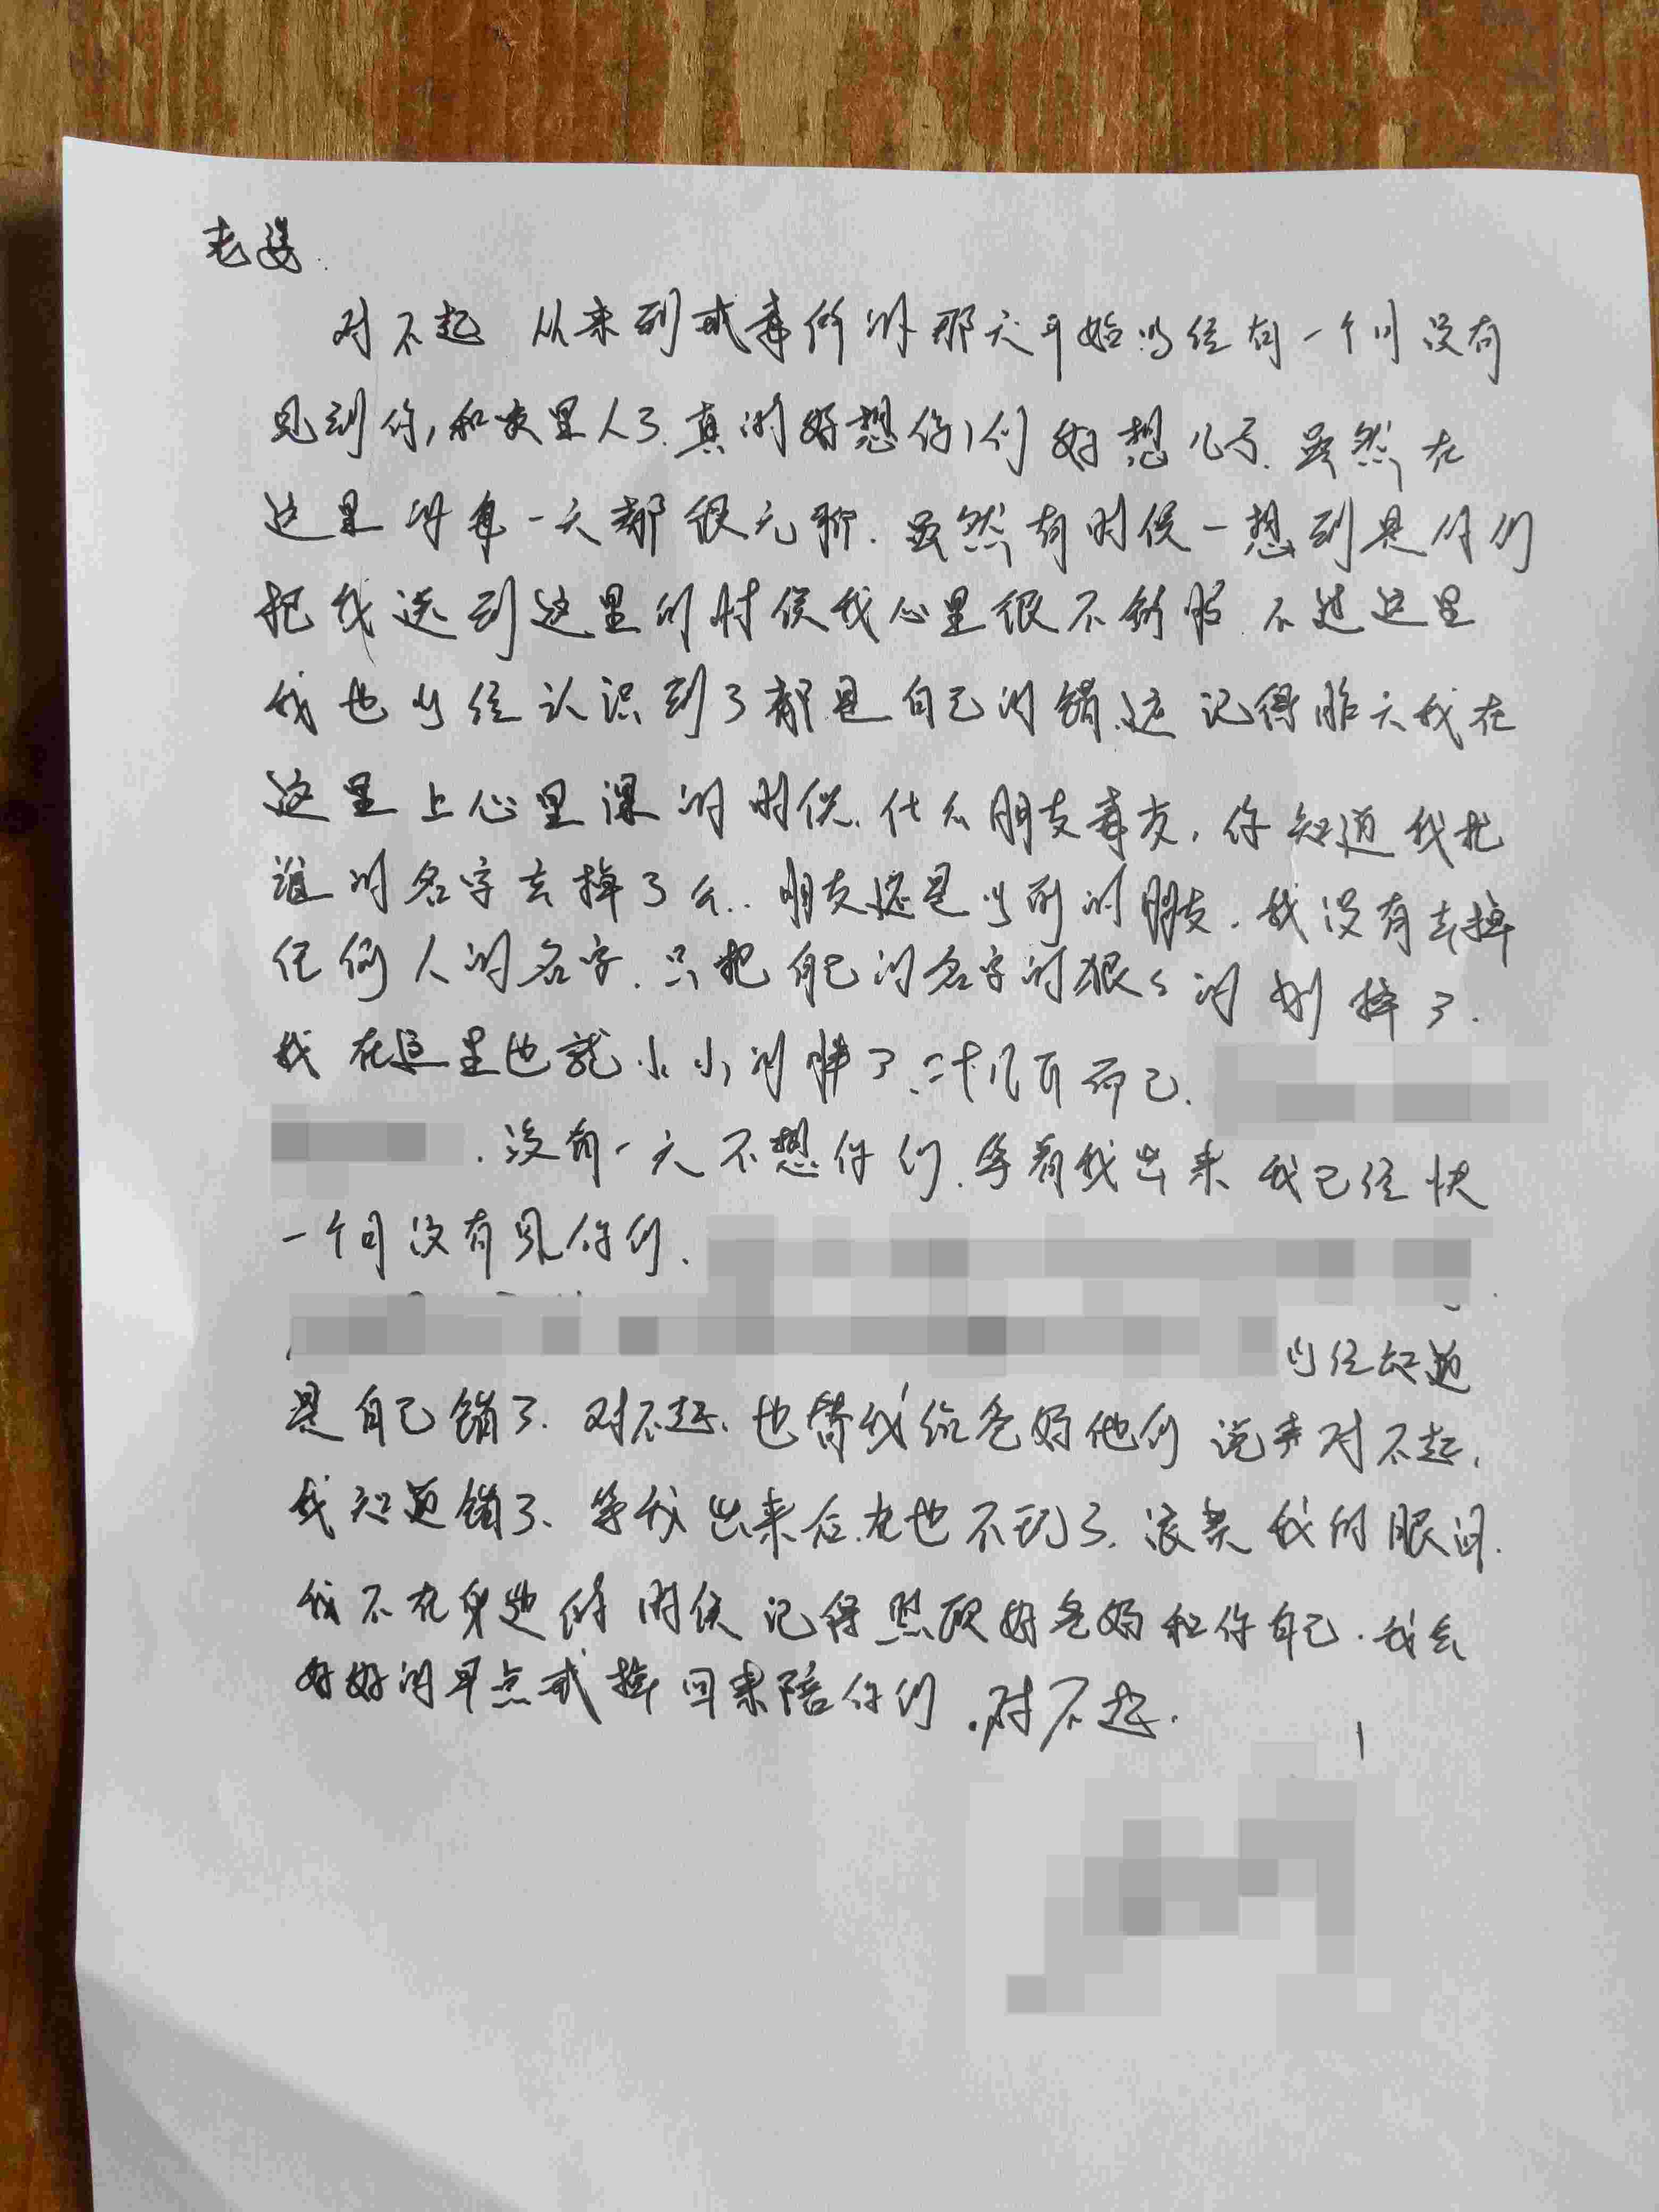 老婆.
对不起 从来到戒毒所的那天开始以经有一个月没有
见到你,和家里人了.真的好想你们好想儿子.虽然在
这里的每一天都很无聊.虽然有时候一想到是你们
把我送到这里的时候我心里很不舒服.不过这里
我也以经认识到了都是自己的错.还记得昨天我在
这里上心里课的时候.什么朋友毒友.你知道我把
谁的名字去掉了么..朋友还是以前的朋友.我没有去掉
任何人的名字.只把自己的名字的狠狠的划掉了.
我在这里也就小小的胖了.二十几斤而已.
.没有一天不想你们.等着我出来 我已经快
一个月没有见你们.
以经知道
是自己错了.对不起.也替我给爸妈他们说声对不起.
我知道错了、等我出来后.在也不玩了.
我不在身边的时候记得照顾好爸妈和你自己.我会
好好的早点戒掉回来陪你们.对不起.